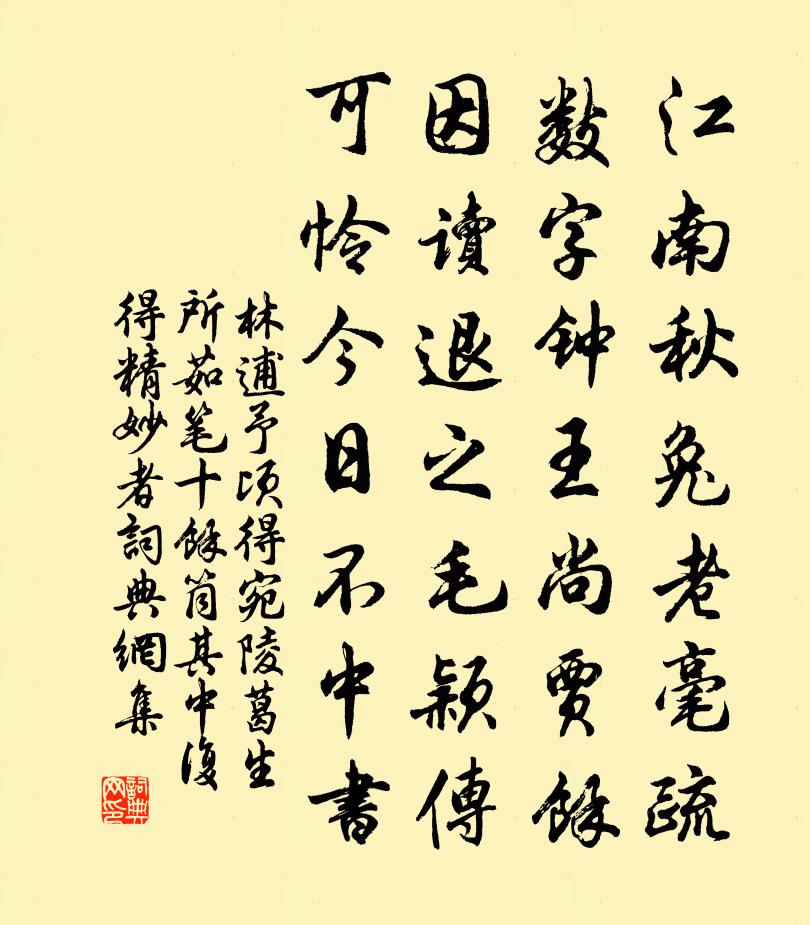 江南秋兔老毫疏
数字钟王尚贾餘
因讀退之毛颖傳
可怜今日不中書
林逋予顷得宛陵葛生
所茹笔十餘筒其中復
得精妙者詞典網集
詞典
网印